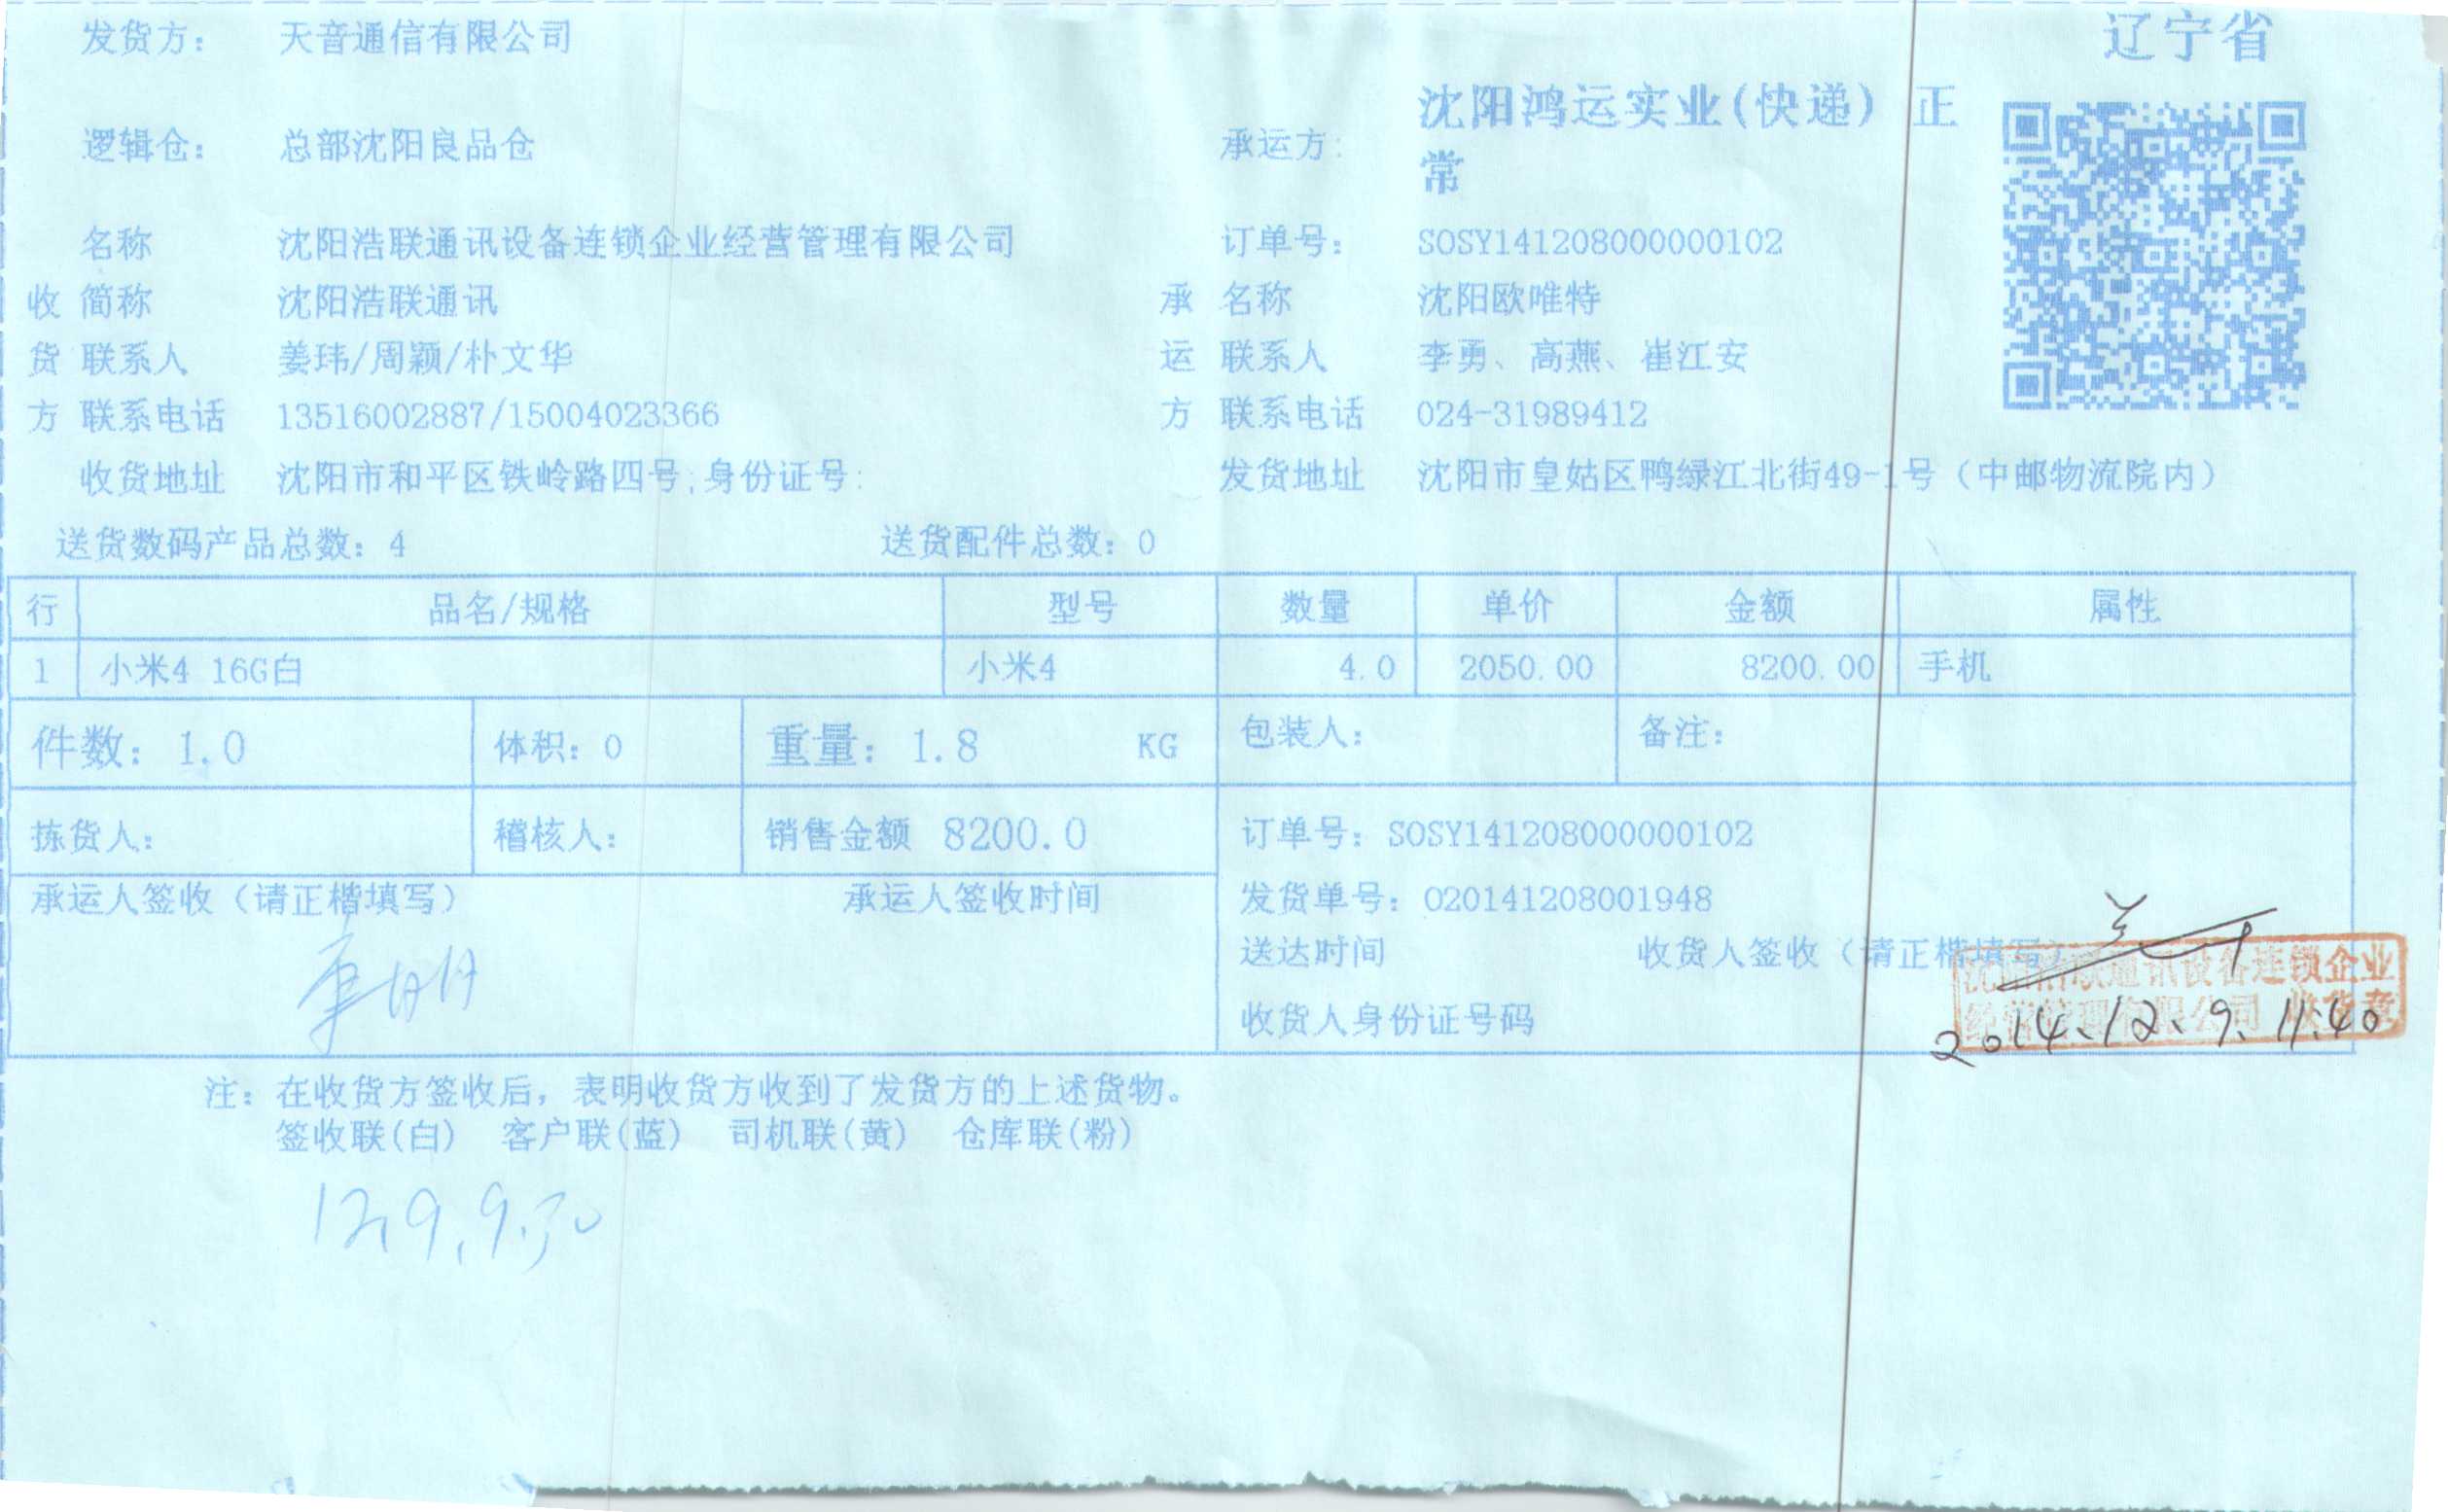 辽宁省
发货方： 天音通信有限公司
逻辑仓： 总部沈阳良品仓 承运方： 沈阳鸿运实业(快递) 正常
名称 沈阳浩联通讯设备连锁企业经营管理有限公司 订单号： SOSY141208000000102
收 简称 沈阳浩联通讯 承 名称 沈阳欧唯特
货 联系人 姜玮/周颖/朴文华 运 联系人 李勇、高燕、崔江安
方 联系电话 13516002887/15004023366 方 联系电话 024-31989412
收货地址 沈阳市和平区铁岭路四号;身份证号: 发货地址 沈阳市皇姑区鸭绿江北街49-1号（中邮物流院内）
送货数码产品总数：4 送货配件总数：0
行 品名/规格 型号 数量 单价 金额 属性
1 小米4 16G白 小米4 4.0 2050.00 8200.00 手机
件数：1.0 体积：0 重量：1.8 KG 包装人： 备注：
拣货人： 稽核人： 销售金额 8200.0 订单号：SOSY141208000000102
承运人签收（请正楷填写） 承运人签收时间 发货单号：020141208001948
送达时间 收货人签收（请正楷填写）
沈阳浩联通讯设备连锁企业
经营管理有限公司
收货人身份证号码
2014.12.9. 11:40
注：在收货方签收后，表明收货方收到了发货方的上述货物。
签收联(白) 客户联(蓝) 司机联(黄) 仓库联(粉)
12.9.9.30